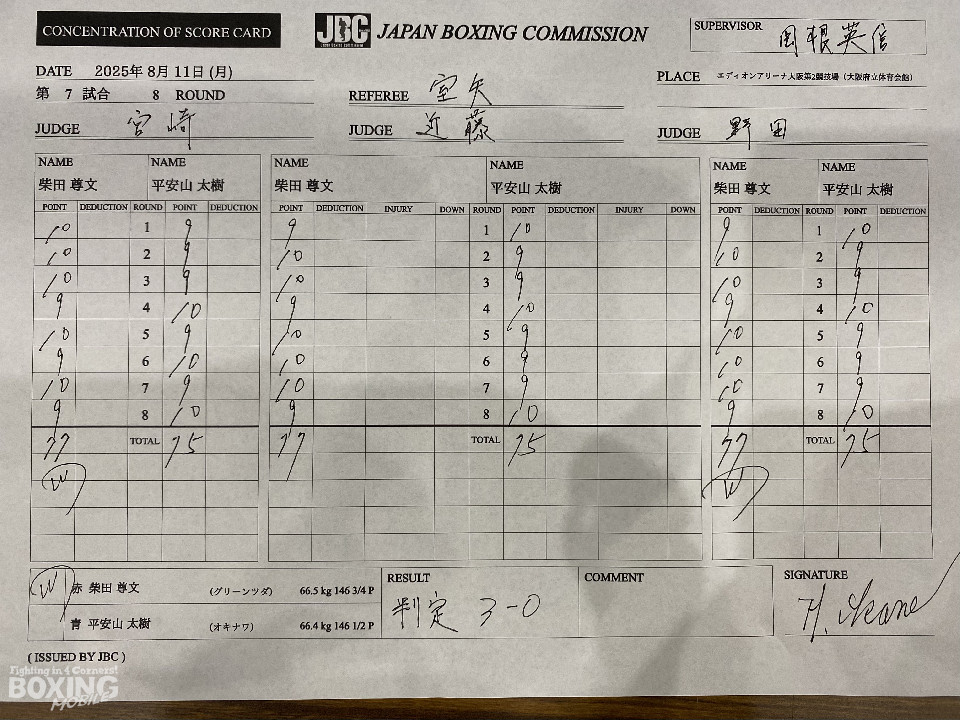 CONCENTRATION OF SCORE CARD
JBC JAPAN BOXING COMMISSION
SUPERVISOR
DATE 2025年 8月 11日 (月)
PLACE エディオンアリーナ大阪第2競技場(大阪府立体育会館)
第 7 試合 8 ROUND
REFEREE 室矢
JUDGE 宮崎
JUDGE 近藤
JUDGE 野田
NAME NAME NAME NAME NAME NAME
柴田 尊文 平安山 太樹 柴田 尊文 平安山 太樹 柴田 尊文 平安山 太樹
POINT DEDUCTION ROUND POINT DEDUCTION POINT DEDUCTION INJURY DOWN ROUND POINT DEDUCTION INJURY DOWN POINT DEDUCTION ROUND POINT DEDUCTION
10 1 9 9 1 10 9 1 10
10 2 9 10 2 9 10 2 9
10 3 9 10 3 9 10 3 9
9 4 10 9 4 10 9 4 10
10 5 9 10 5 9 10 5 9
9 6 10 10 6 9 10 6 9
10 7 9 10 7 9 10 7 9
9 8 10 9 8 10 9 8 10
77 TOTAL 75 77 TOTAL 75 77 TOTAL 75
W W
W 赤 柴田 尊文 (グリーンツダ) 66.5 kg 146 3/4 P
青 平安山 太樹 (オキナワ) 66.4 kg 146 1/2 P
RESULT
判定 3-0
COMMENT
SIGNATURE
( ISSUED BY JBC )
Fighting in 4 Corners!
BOXING
MOBILE